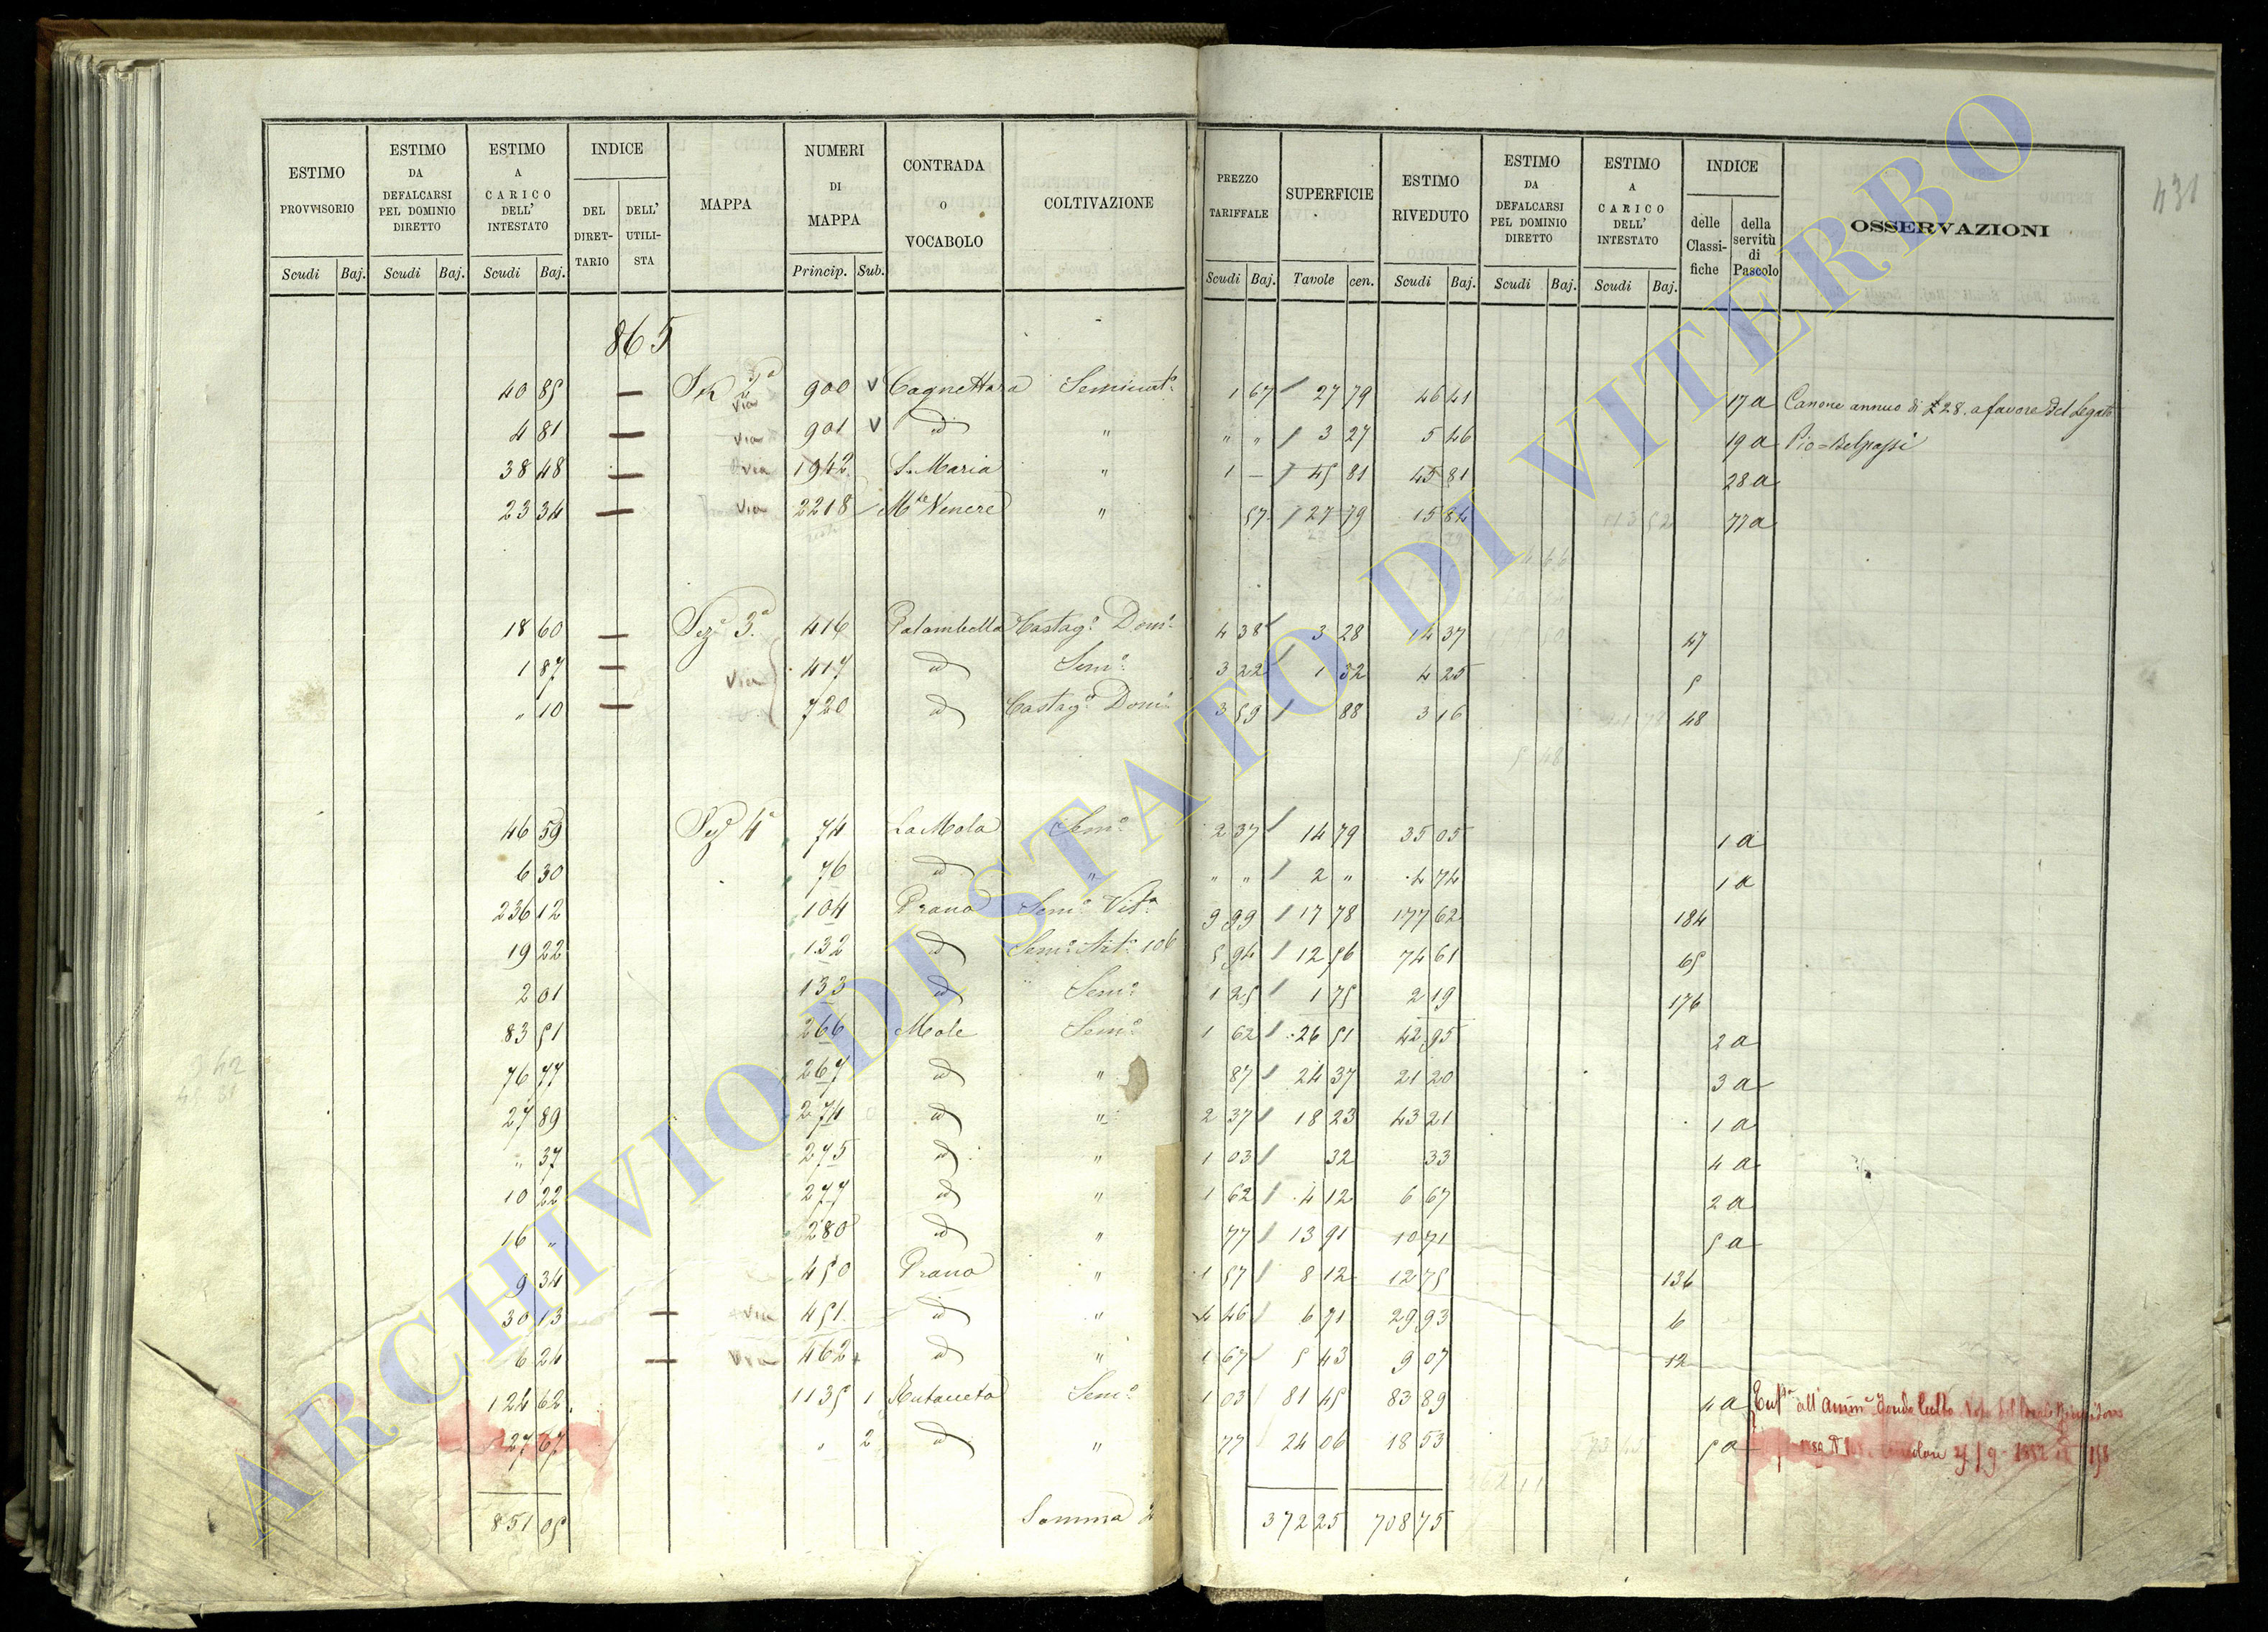 431
ESTIMO PROVVISORIO | ESTIMO DA DEFALCARSI PEL DOMINIO DIRETTO | ESTIMO A CARICO DELL' INTESTATO | INDICE DEL DIRET- TARIO | DELL' UTILI- STA | MAPPA | NUMERI DI MAPPA | CONTRADA O VOCABOLO | COLTIVAZIONE | PREZZO TARIFFALE | SUPERFICIE | ESTIMO RIVEDUTO | ESTIMO DA DEFALCARSI PEL DOMINIO DIRETTO | ESTIMO A CARICO DELL' INTESTATO | INDICE delle Classi- fiche | della servitù di Pascolo | OSSERVAZIONI
Scudi Baj. | Scudi Baj. | Scudi Baj. | Princip. Sub. | Scudi Baj. | Tavole cen. | Scudi Baj. | Scudi Baj. | Scudi Baj.
865
40 85 — 2ª via 900 V Cagnettara Seminat.º 1 67 27 79 46 41 17 a Canone annuo di 28. a favore del Legato
4 81 — via 901 V id " " " 3 27 5 46 19 a Pio=
38 48 — via 1942 S. Maria " 1 — 45 81 45 81 28 a
23 34 — via 2218 Mte Venere " 57 27 79 15 84 77 a
18 60 — Sez.e 3ª 416 Palombella Castag.º Dom.º 4 38 3 28 14 37 47
1 87 — via 417 id Sem.º 3 22 1 32 4 25 5
" 10 — 720 id Castag.º Dom.º 3 59 88 3 16 48
46 59 Sez.e 4ª 74 La Mola Sem.º 2 37 14 79 35 05 1 a
6 30 76 id " " " 2 " 4 74 1 a
236 12 104 Prano Sem.º Vit.º 9 99 17 78 177 62 184
19 22 132 id Sem.º 106 5 94 12 56 74 61 65
2 01 133 id Sem.º 1 25 1 75 2 19 176
83 51 266 Mole Sem.º 1 62 26 51 42 95 2 a
76 77 267 id " 87 24 37 21 20 3 a
27 89 274 id " 2 37 18 23 43 21 1 a
" 37 275 id " 1 03 32 33 4 a
10 22 277 id " 1 62 4 12 6 67 2 a
16 " 280 id " 77 13 91 10 71 5 a
9 34 450 Prano " 1 57 8 12 12 75 136
30 13 — via 451 id " 4 46 6 71 29 93 6
6 24 — via 462 id " 1 67 5 43 9 07 12
124 62 1135 1 Sem.º 1 03 81 45 83 89 4 a all'
27 67 " 2 id " 77 24 06 18 53 5 a
851 05 Somma 372 25 708 75
ARCHIVIO DI STATO DI VITERBO